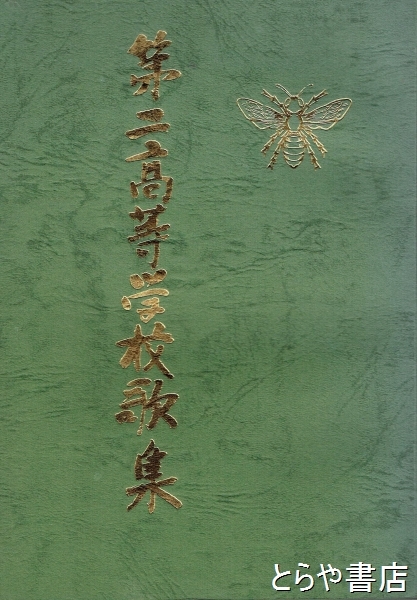 第二高等学校歌集
とらや書店